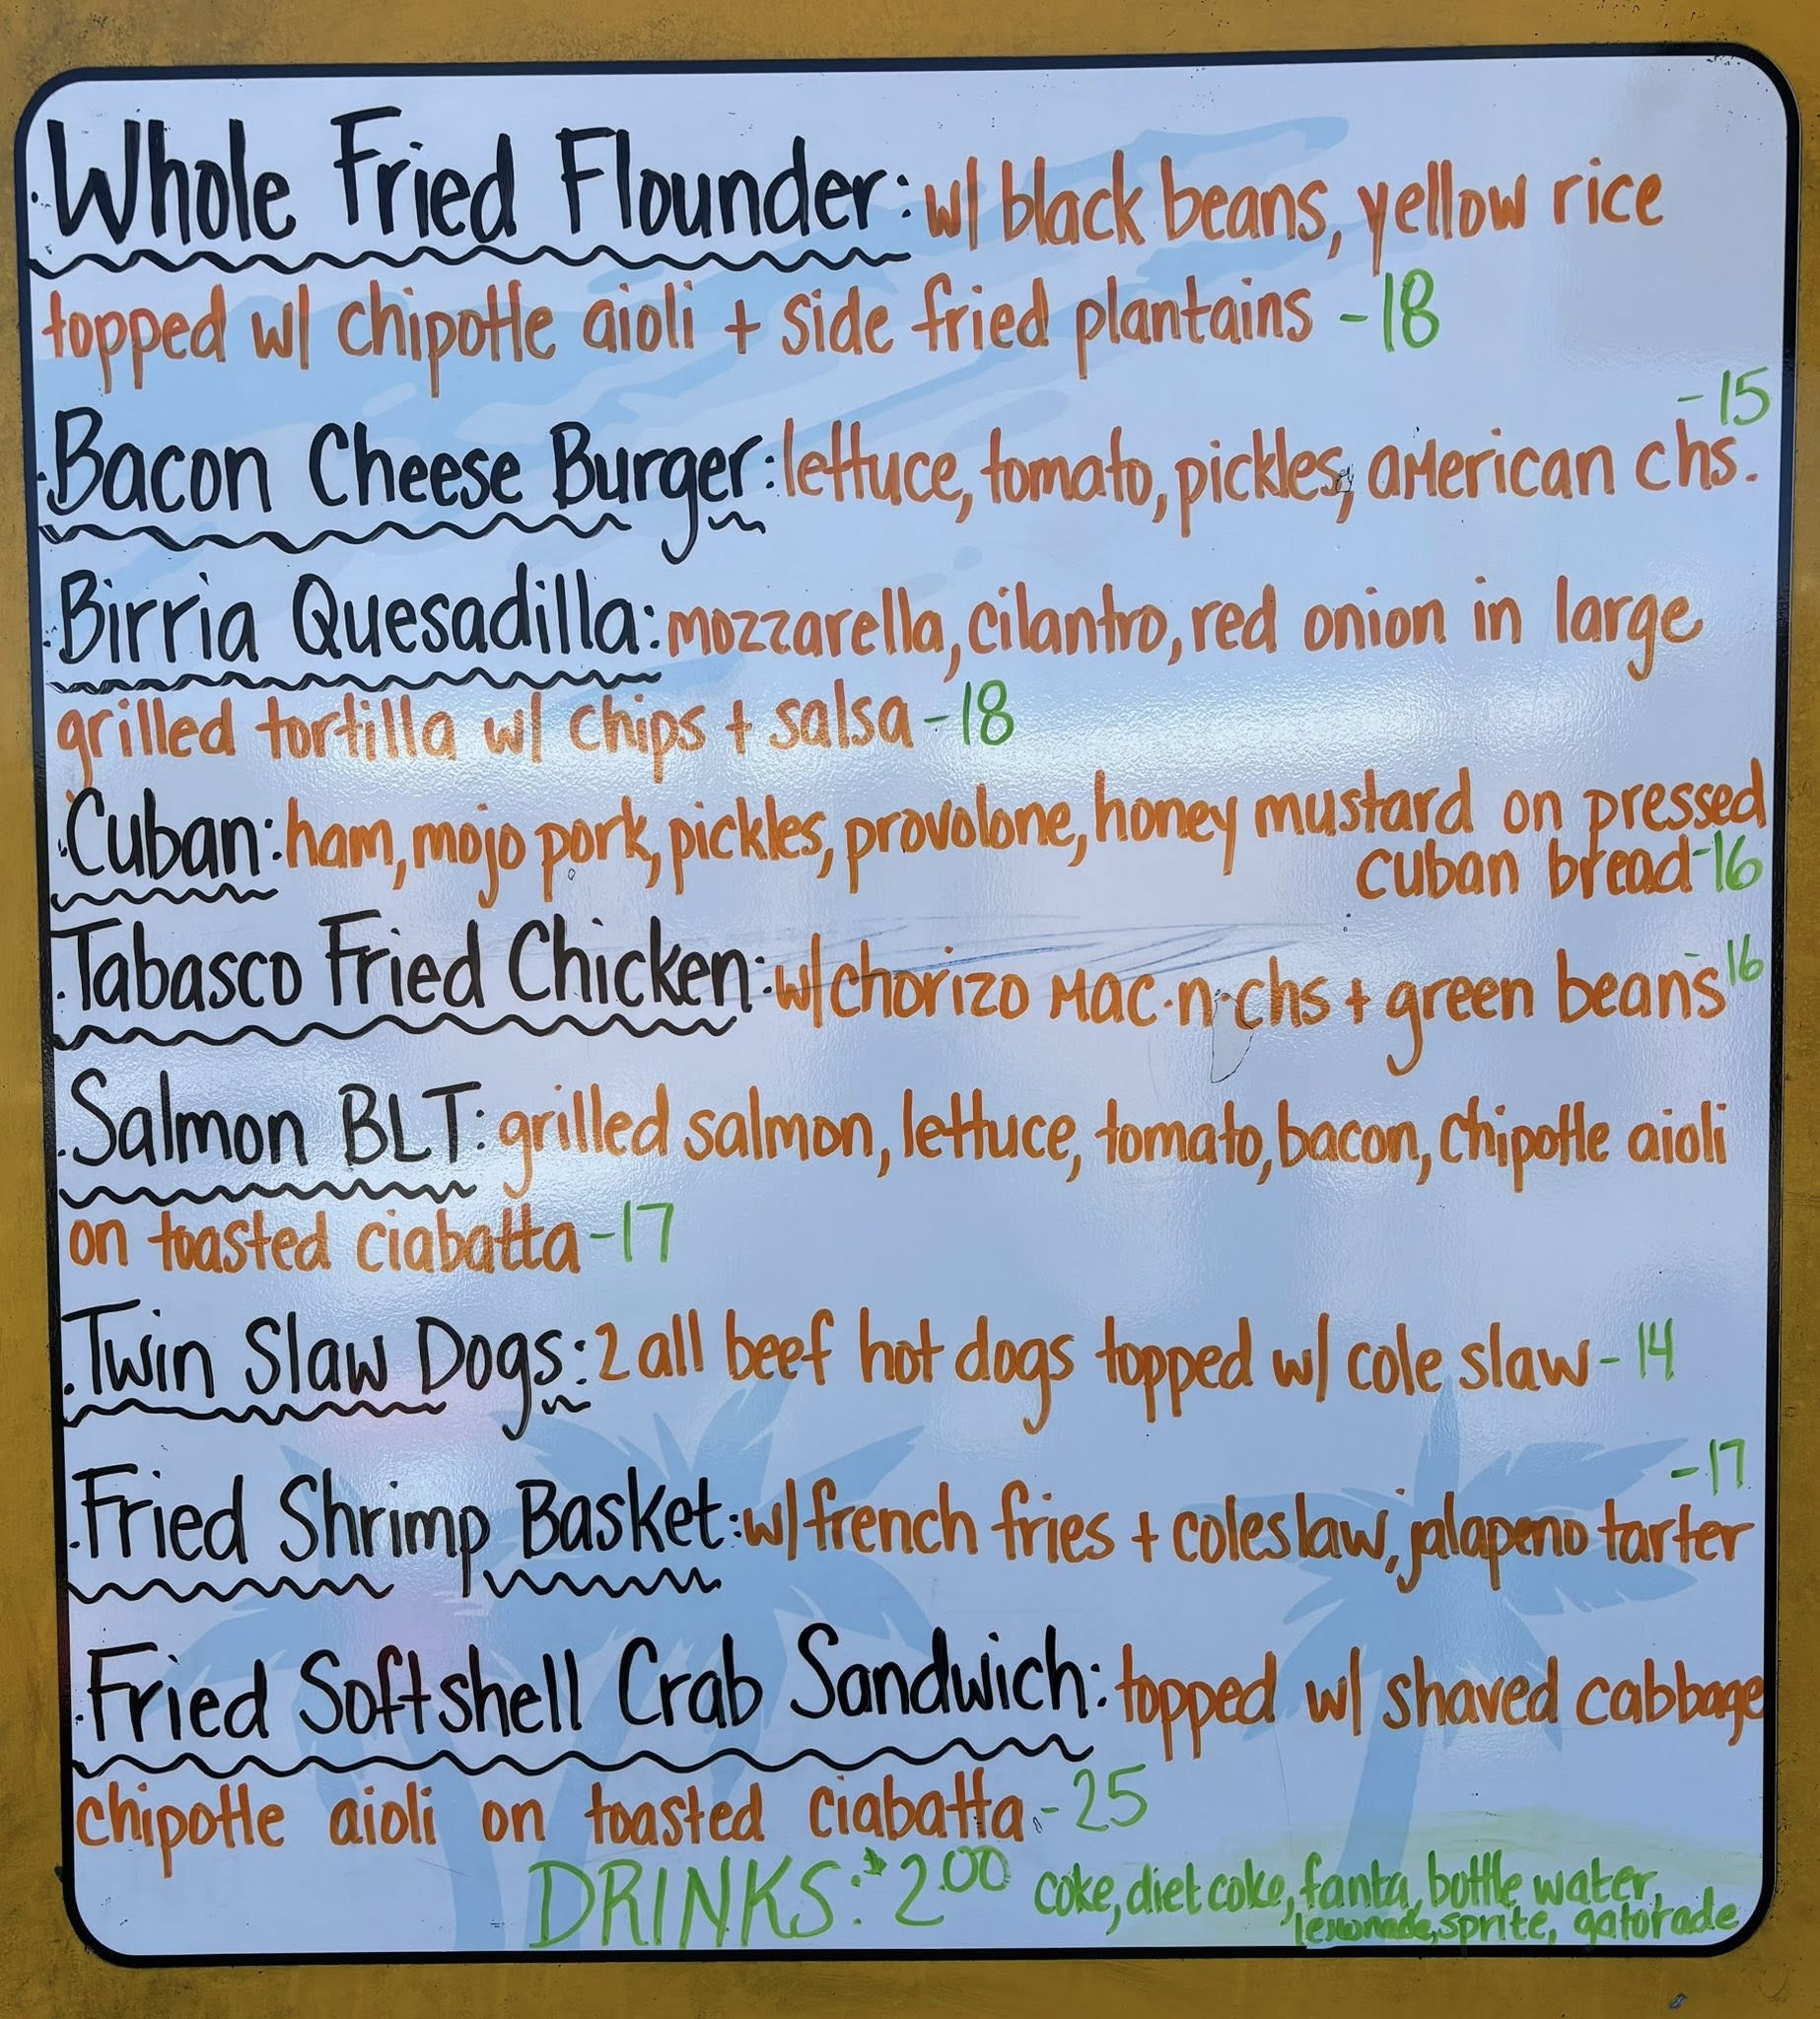 ·Whole Fried Flounder: w/ black beans, yellow rice
topped w/ chipotle aioli + side fried plantains -18
-15
·Bacon Cheese Burger: lettuce, tomato, pickles, aMerican chs.
·Birria Quesadilla: mozzarella, cilantro, red onion in large
grilled tortilla w/ chips + salsa -18
·Cuban: ham, mojo pork, pickles, provolone, honey mustard on pressed
cuban bread -16
·Tabasco Fried Chicken: w/ chorizo Mac·n·chs + green beans -16
·Salmon BLT: grilled salmon, lettuce, tomato, bacon, chipotle aioli
on toasted ciabatta -17
·Twin Slaw Dogs: 2 all beef hot dogs topped w/ cole slaw - 14
-17
·Fried Shrimp Basket: w/ french fries + coleslaw, jalapeno tarter
·Fried Softshell Crab Sandwich: topped w/ shaved cabbage
chipotle aioli on toasted ciabatta -25
DRINKS: $2.00 coke, diet coke, fanta, bottle water,
lemonade, sprite, gatorade